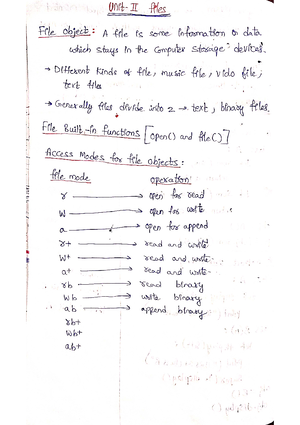 Unit-II files
File object: A file is some information or data
which stays in the computer storage devices.
→ Different kinds of file, music file, vido file,
text files
→ Generally files divide into 2 → text, binary files.
File Built-in functions [open() and file()]
Access Modes for file objects:
file mode operation
r → open for read
w → open for write
a → open for append
r+ → read and write
w+ → read and write
a+ → read and write
rb → read binary
wb → write binary
ab → append binary
rb+
wb+
ab+